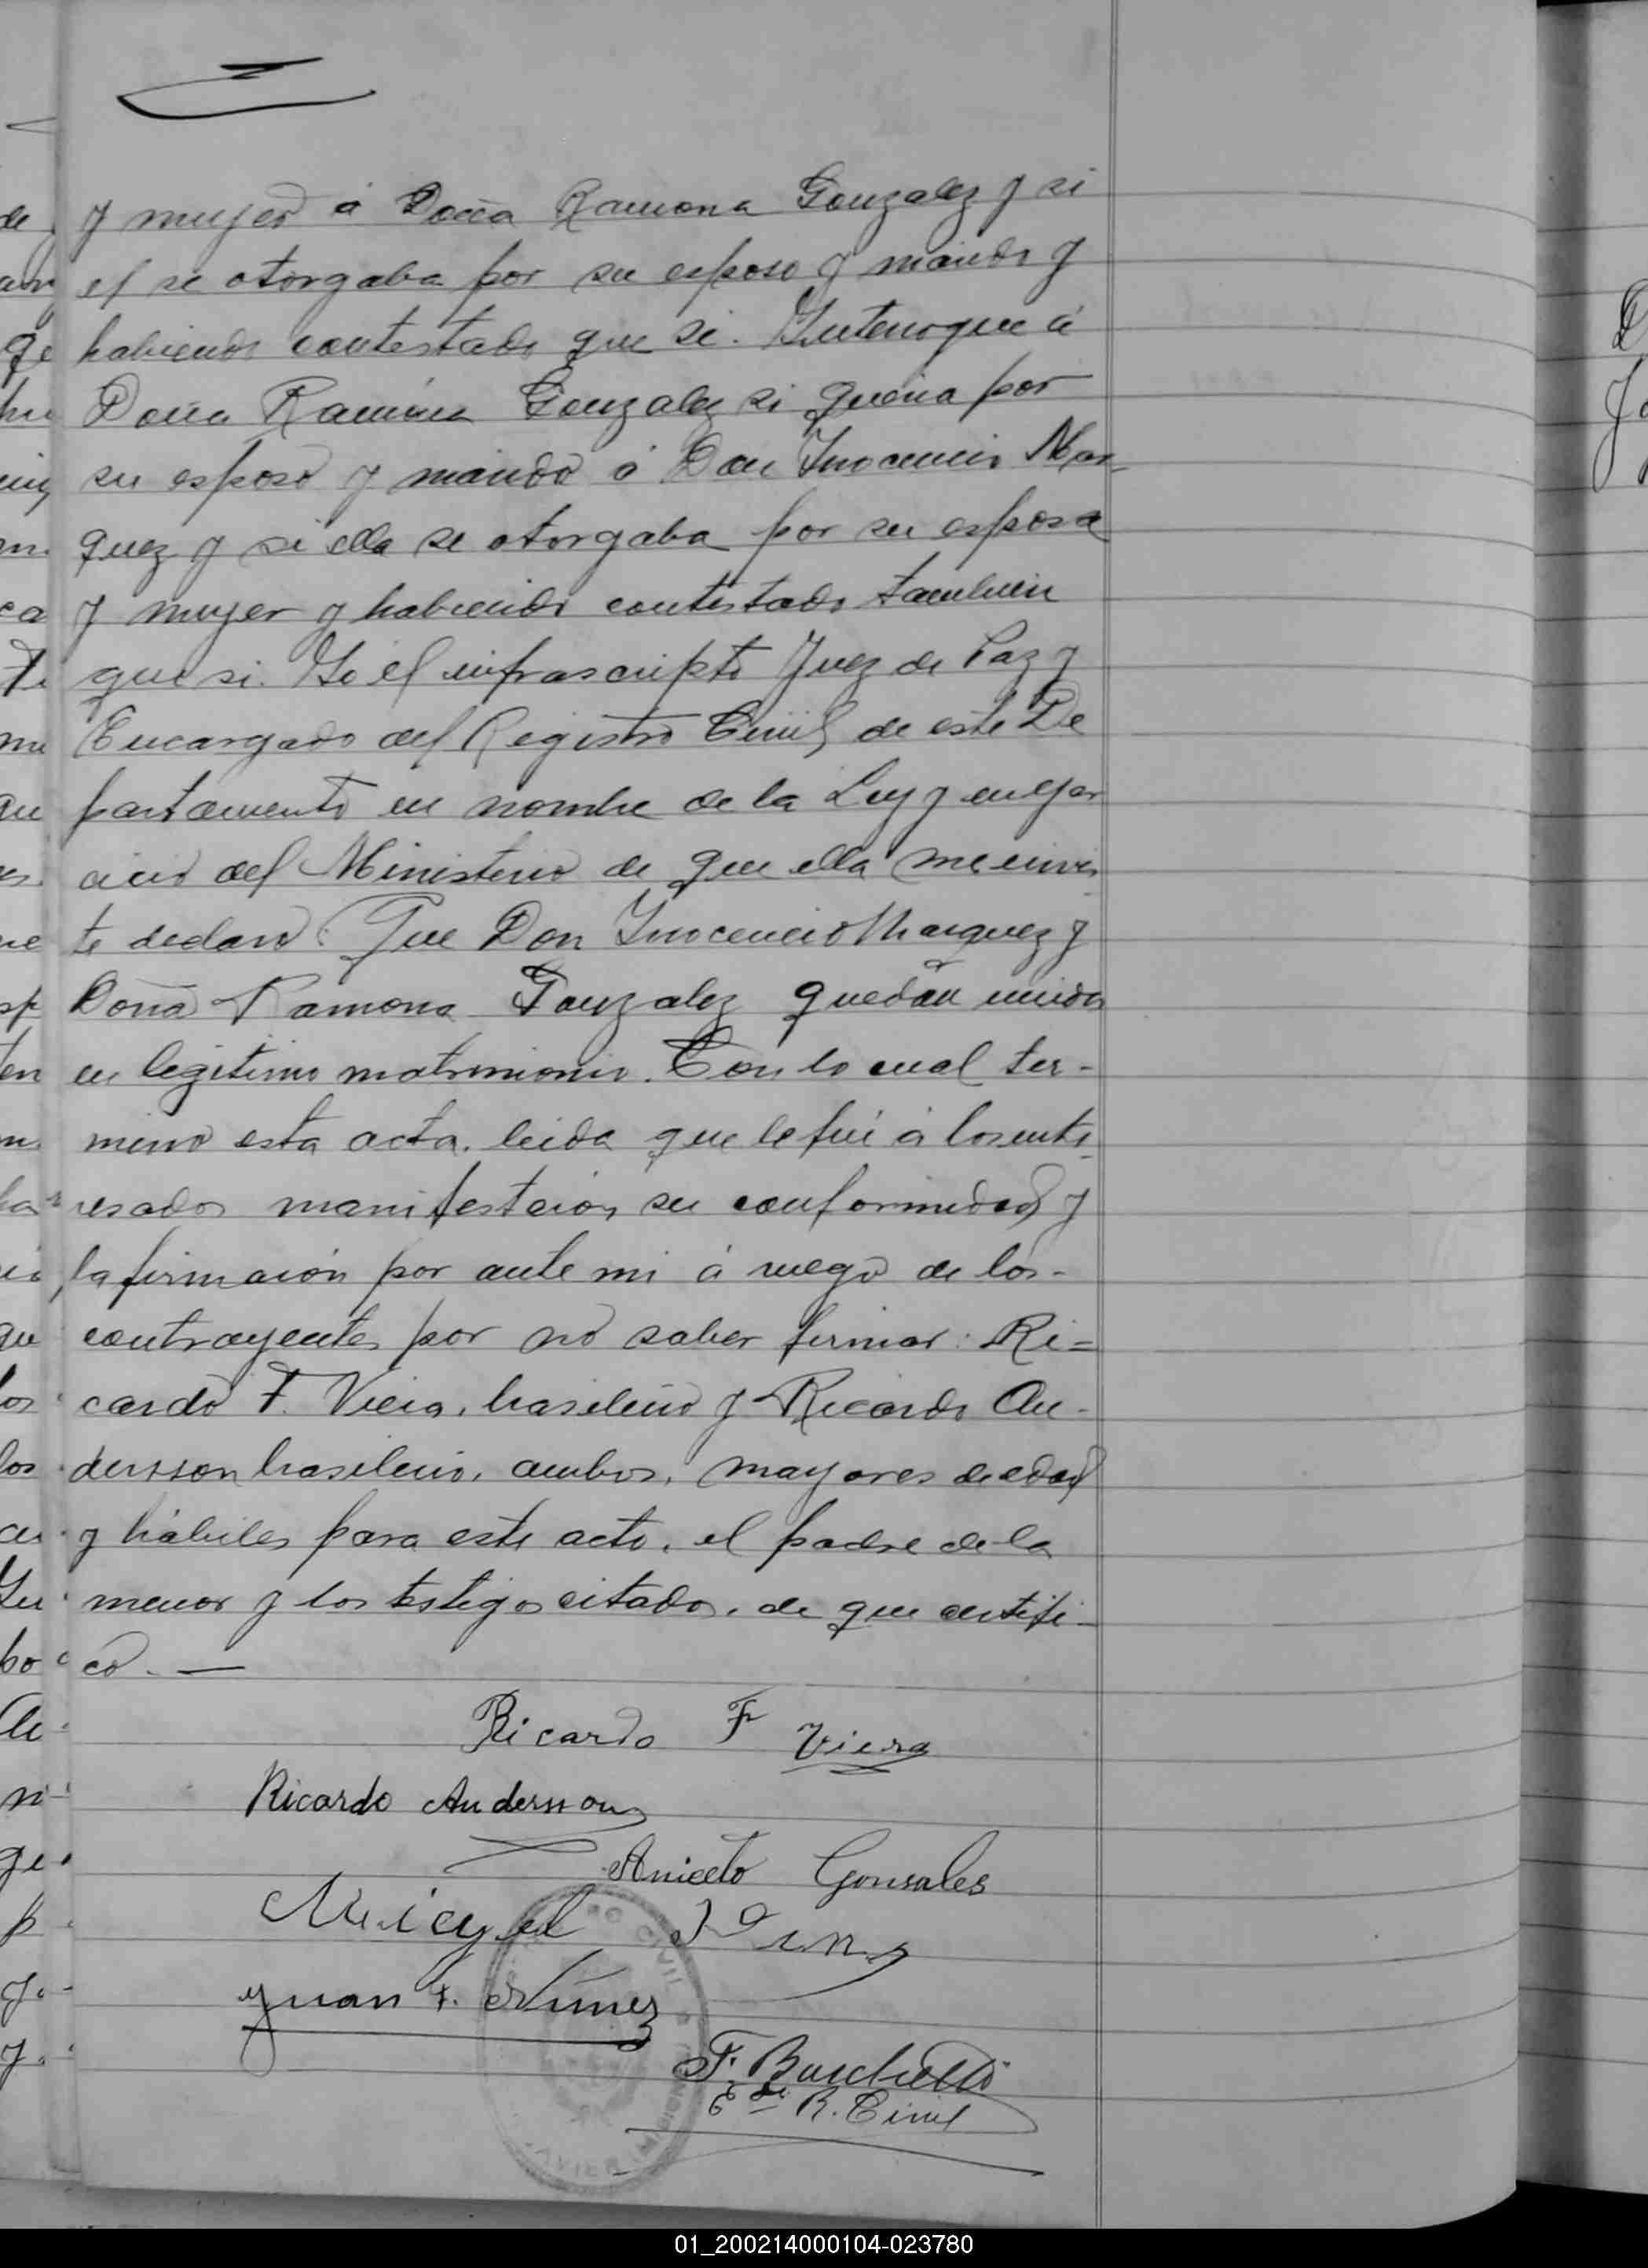 y mujer á Doña Ramona Gonzalez y si
el se otorgaba por su esposo y marido y
habiendo contestado que si. Interrogue á
Doña Ramona Gonzalez si queria por
su esposo y marido á Don Inocencio Mar
quez y si ella se otorgaba por su esposa
y mujer y habiendo contestado tambien
que si. Yo el infrascripto Juez de Paz y
Encargado del Registro Civil de este De
partamento en nombre de la Ley y en ejer
cicio del Ministerio de que ella me invis
te declaro: Que Don Inocencio Marquez y
Doña Ramona Gonzalez quedan unidos
en legitimo matrimonio. Con lo cual ter-
mino esta acta, leida que le fué á los inte
resados manifestaron su conformidad y
la firmaron por ante mi á ruego de los-
contrayentes por no saber firmar: Ri=
cardo F. Viera, brasilero y Ricardo An-
dersson brasilero, ambos, mayores de edad
y hábiles para este acto, el padre de la
menor y los testigos citados, de que certifi-
co. —
Ricardo F Viera
Ricardo Andersson
Aniceto Gonsales
Miguel
Juan F. Nuñez
F. Buschetti
Edo R. Civil
01_200214000104-023780